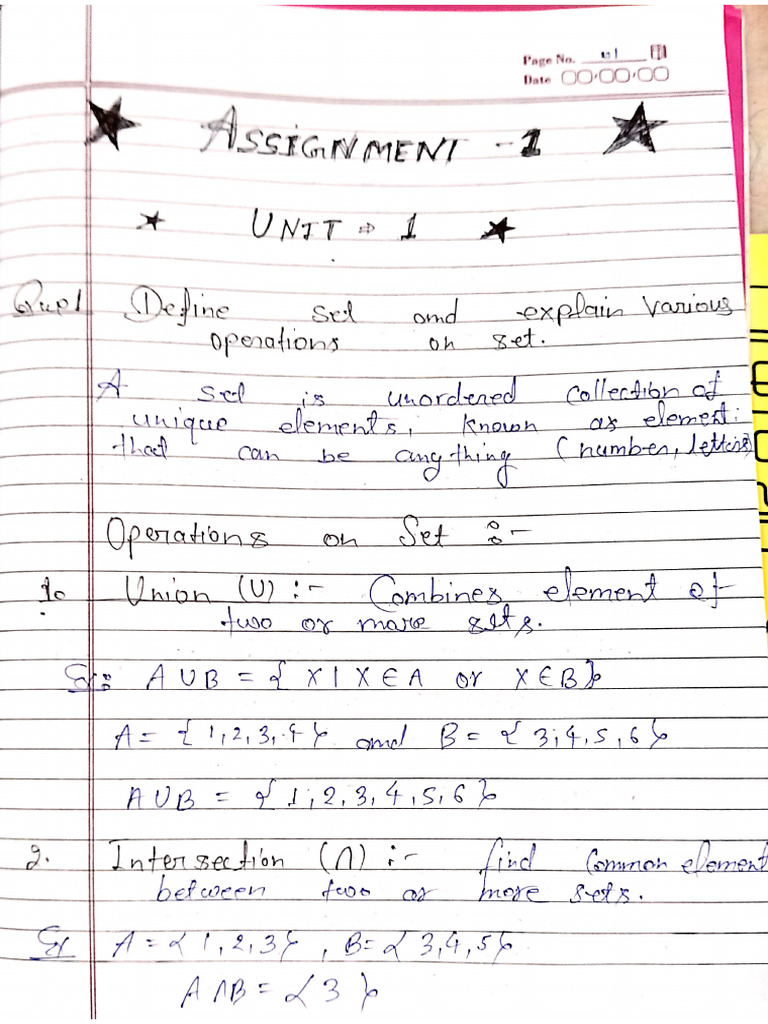 Page No.
Date
ASSIGNMENT - 1
UNIT ⇒ 1
Que1 Define set and explain various
operations on set.
A set is unordered collection of
unique elements, known as element
that can be anything (number, letters)
Operations on Set :-
1. Union (U) :- Combines element of
two or more sets.
Ex: A U B = { X | X ∈ A or X ∈ B }
A = { 1, 2, 3, 4 } and B = { 3, 4, 5, 6 }
A U B = { 1, 2, 3, 4, 5, 6 }
2. Intersection (∩) :- find Common element
between two or more sets.
Ex A = { 1, 2, 3 } , B = { 3, 4, 5 }
A ∩ B = { 3 }